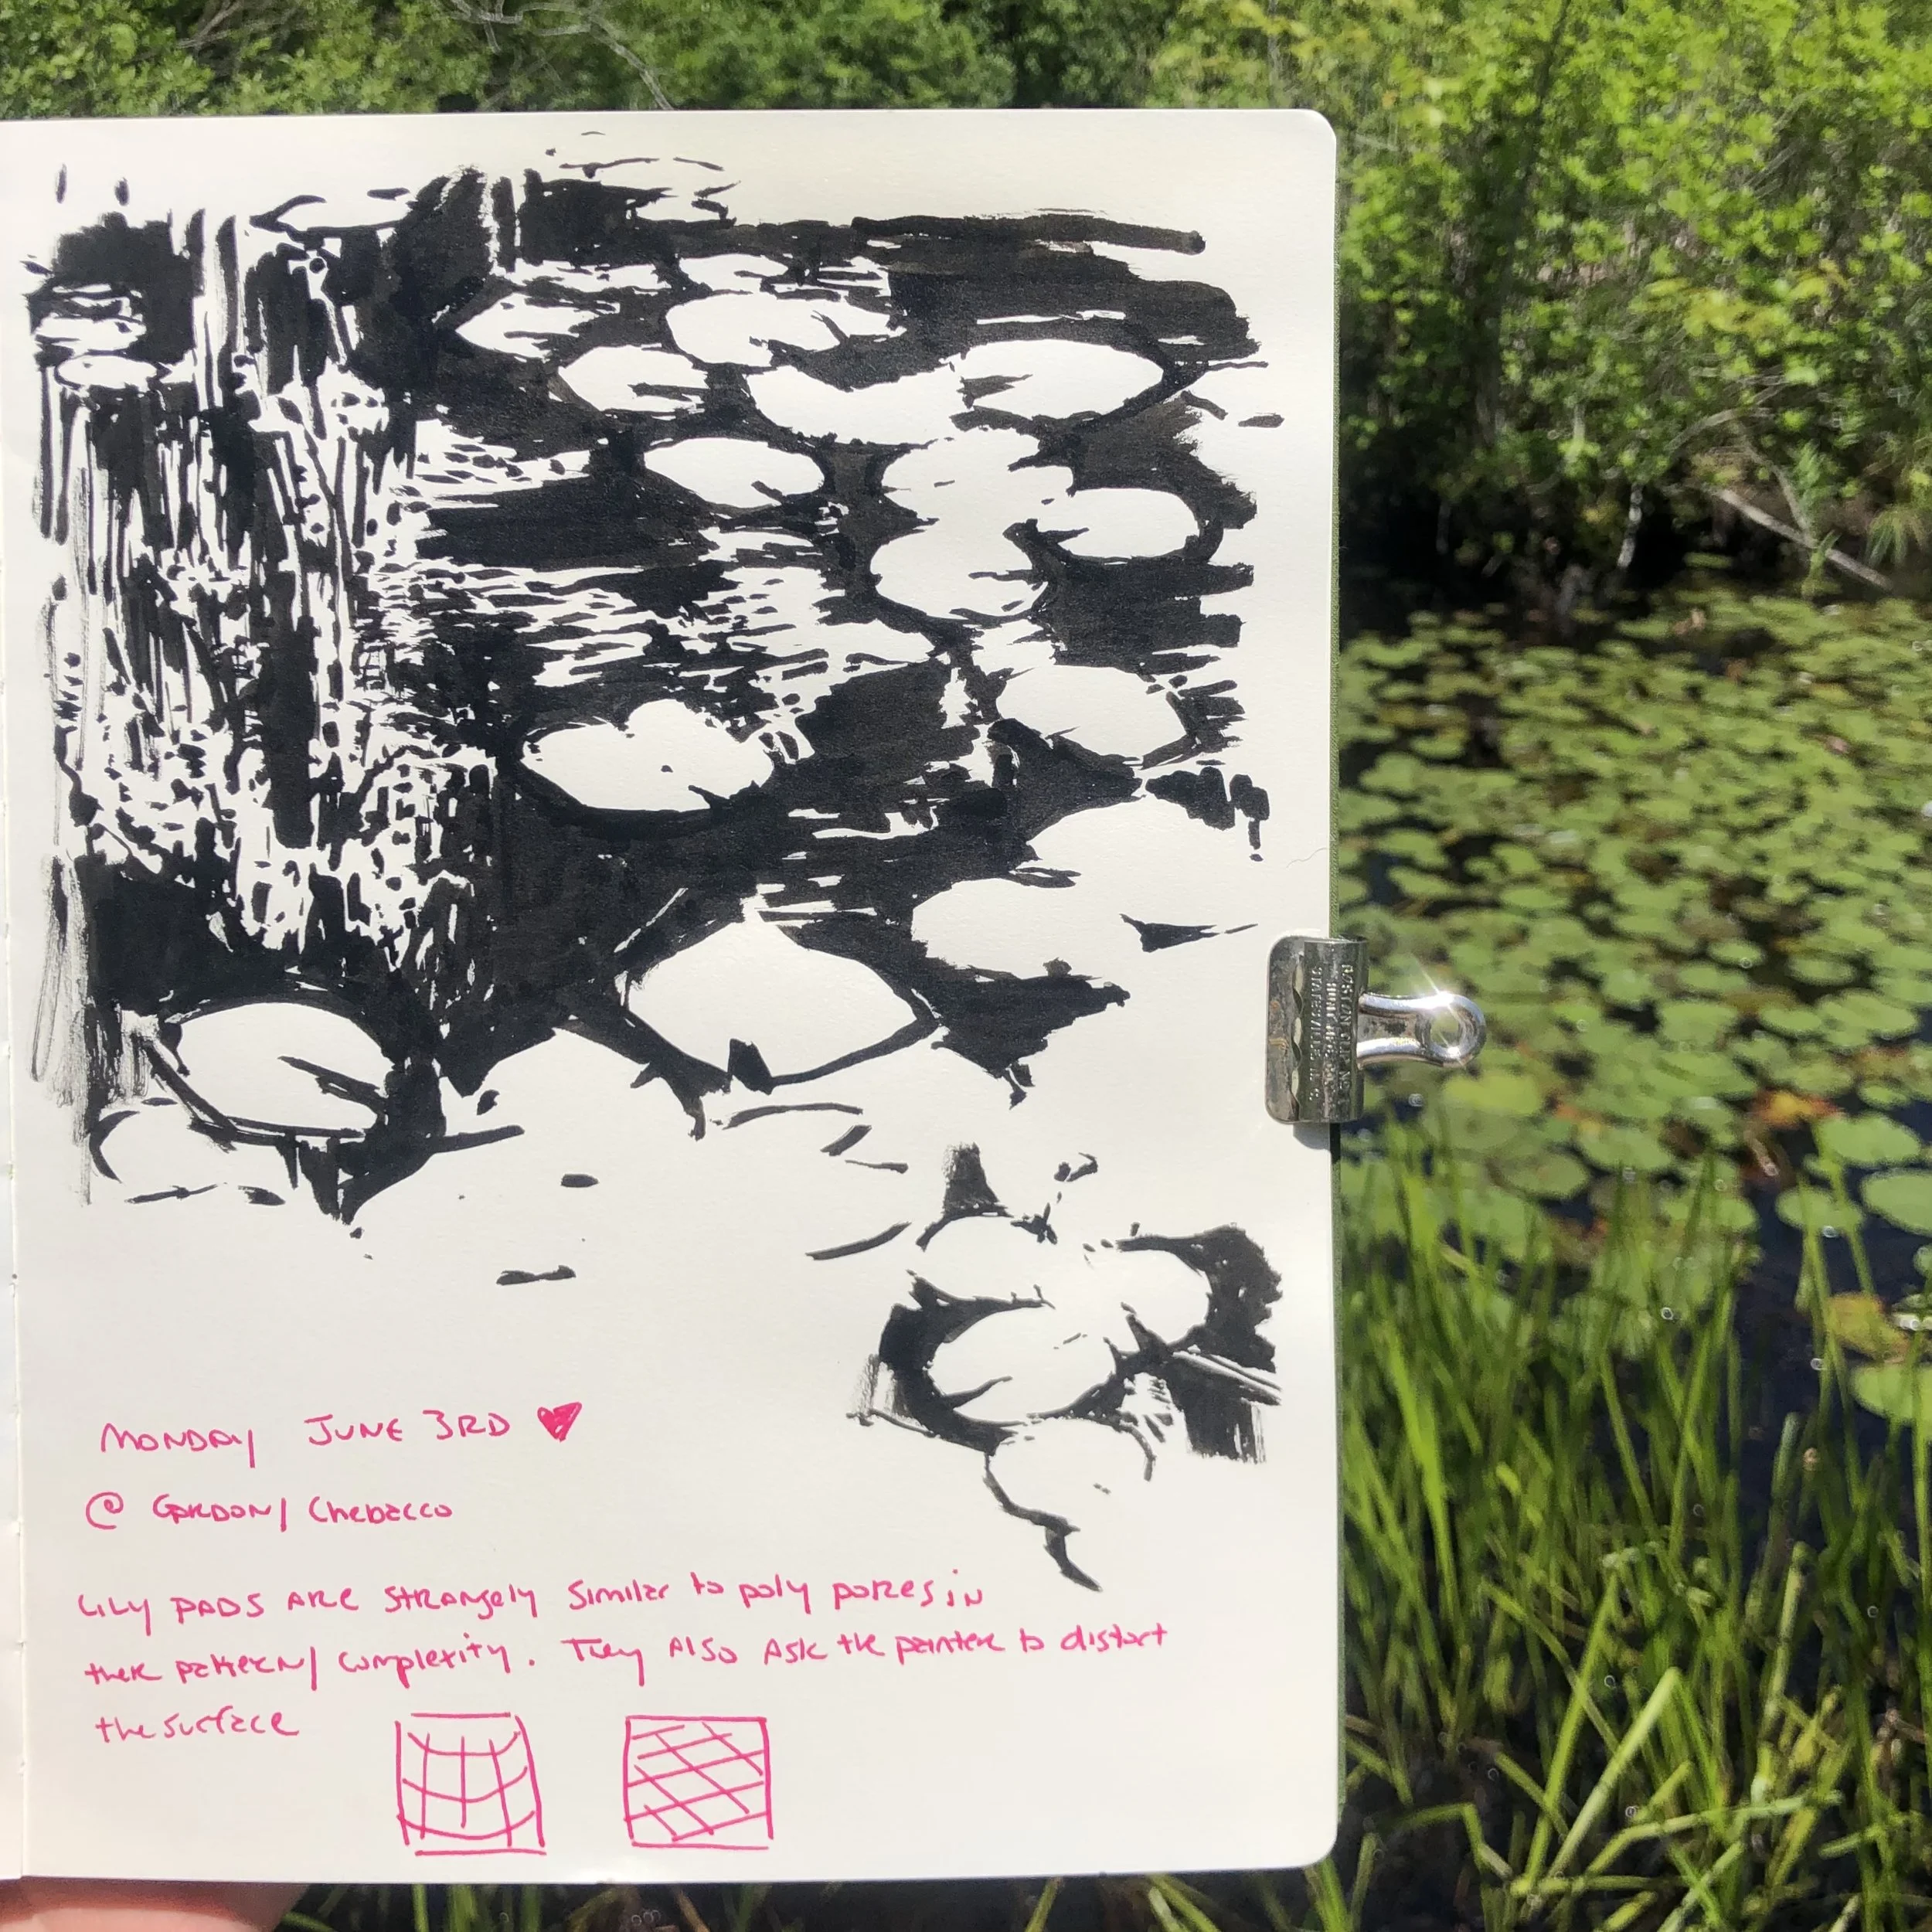 MONDAY JUNE 3RD ♥
@ GORDON/ Chebacco
LILY PADS ARE STRANGELY similar to poly pores in
their pattern/ complexity. They Also Ask the painter to distort
the surface